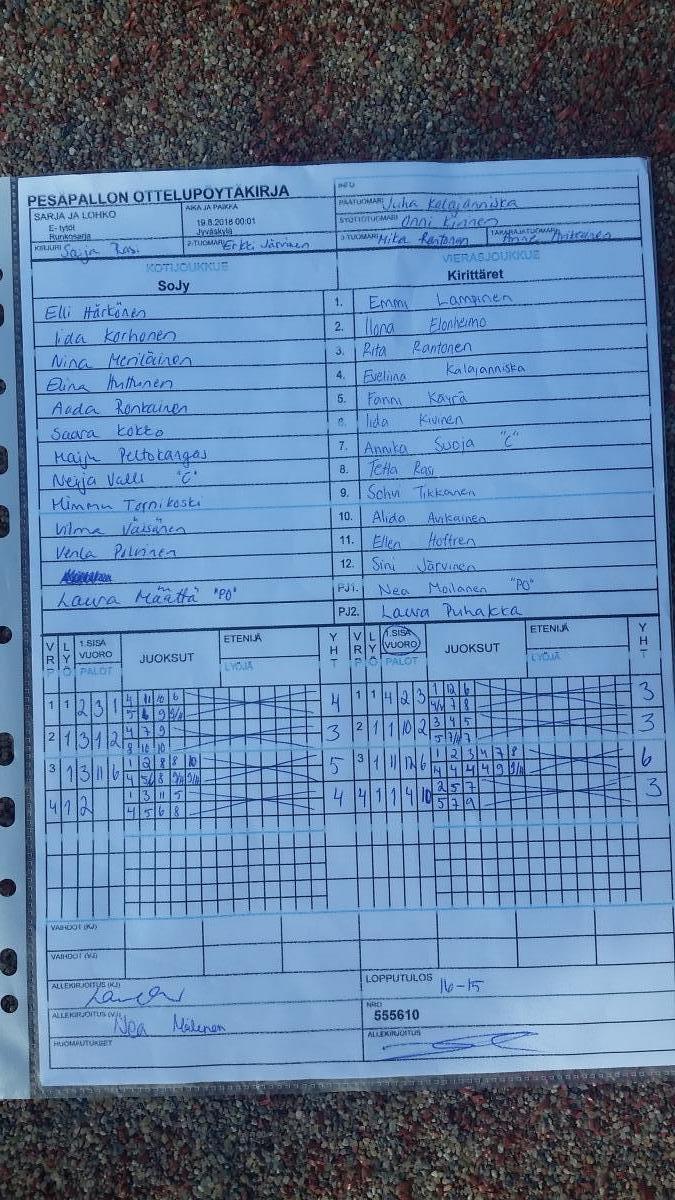 PESÄPALLON OTTELUPÖYTÄKIRJA
SARJA JA LOHKO
E- tytöt
Runkosarja
AIKA JA PAIKKA
19.8.2018 00:01
Jyväskylä
INFO
PÄÄTUOMARI Juha Kalajanniska
SYÖTTÖTUOMARI Onni Kivinen
KIRJURI Saija Rasi
2-TUOMARI Erkki Järvinen
3-TUOMARI Mika Rantonen
TAKARAJATUOMARI Avikainen
KOTIJOUKKUE
VIERASJOUKKUE
SoJy
Kirittäret
Elli Härkönen
1. Emmi Lampinen
Iida Korhonen
2. Ilona Elonheimo
Nina Meriläinen
3. Rita Rantonen
Elina Huttunen
4. Eveliina Kalajanniska
Aada Ronkainen
5. Fanni Käyrä
Saara Kokko
6. Iida Kivinen
Maiju Peltokangas
7. Annika Suoja "C"
Neija Valli "C"
8. Jetta Rasi
Mimmu Tornikoski
9. Sohvi Tikkanen
Vilma Väisänen
10. Alida Avikainen
Venla Pulvinen
11. Ellen Hoffren
12. Sini Järvinen
Laura Määttä "PO"
PJ1. Nea Moilanen "PO"
PJ2. Laura Puhakka
VRP LYÖ 1.SISÄ VUORO PALOT JUOKSUT ETENIJÄ LYÖJÄ YHT
VRP LYÖ 1.SISÄ VUORO PALOT JUOKSUT ETENIJÄ LYÖJÄ YHT
1 1 2 3 1 4 11 10 6 4
1 1 4 2 3 1 12 6 3
5 6 9
7 8
2 1 3 1 2 4 7 9 3
2 1 1 10 2 3 4 5 3
8 10 10
5 7
3 1 3 11 6 1 2 8 8 10 5
3 1 11 12 6 1 2 3 4 7 8 6
4 4 4 4 9
4 1 2 1 3 11 5 4
4 1 1 4 10 2 5 7 3
4 5 6 8
5 7 9
VAIHDOT (KJ)
VAIHDOT (VJ)
ALLEKIRJOITUS (KJ)
LOPPUTULOS 16-15
ALLEKIRJOITUS (VJ) Nea Moilanen
NRO
555610
HUOMAUTUKSET
ALLEKIRJOITUS